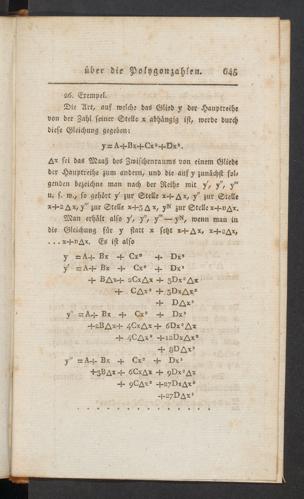 über die Polygonzahlen. 645
26. Exempel.
Die Art, auf welche das Glied y der Hauptreihe
von der Zahl seiner Stelle x abhängig ist, werde durch
diese Gleichung gegeben:
y=A+Bx+Cx²+Dx³.
△x sei das Maaß des Zwischenraums von einem Gliede
der Hauptreihe zum andern, und die auf y zunächst fol-
genden bezeichne man nach der Reihe mit y', y'', y'''
u. s. w., so gehört y' zur Stelle x+△x, y'' zur Stelle
x+2△x, y''' zur Stelle x+3△x, yᴺ zur Stelle x+n△x.
Man erhält also y', y'', y'''—yᴺ, wenn man in
die Gleichung für y statt x setzt x+△x, x+2△x,
...x+n△x. Es ist also
y =A+ Bx + Cx² + Dx³
y' =A+ Bx + Cx² + Dx³
+ B△x+ 2Cx△x + 3Dx²△x
+ C△x² + 3Dx△x²
+ D△x³
y'' =A+ Bx + Cx² + Dx³
+2B△x+ 4Cx△x + 6Dx²△x
+ 4C△x² +12Dx△x²
+ 8D△x³
y''' =A+ Bx + Cx² + Dx³
+3B△x+ 6Cx△x + 9Dx²△x
+ 9C△x² +27Dx△x²
+27D△x³
. . . . . . . . . . . . . .